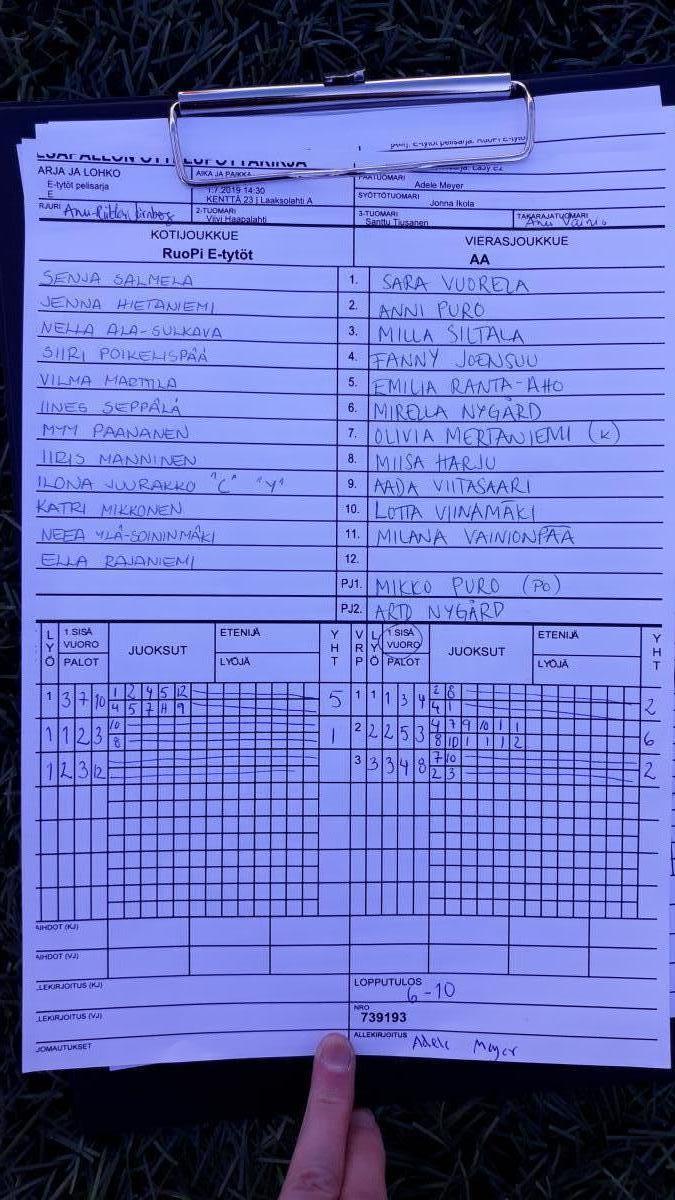 ARJA JA LOHKO
E-tytöt pelisarja
E
AIKA JA PAIKKA
1.7.2019 14:30
KENTTÄ 23 | Laaksolahti A
Adele Meyer
SYÖTTÖTUOMARI
Jonna Ikola
RJURI
2-TUOMARI
Viivi Haapalahti
3-TUOMARI
Santtu Tiusanen
TAKARAJATUOMARI
Anu Vainio
KOTIJOUKKUE VIERASJOUKKUE
RuoPi E-tytöt AA
SENJA SALMELA 1. SARA VUORELA
JENNA HIETANIEMI 2. ANNI PURO
NELLA ALA-SULKAVA 3. MILLA SILTALA
SIIRI POIKELISPÄÄ 4. FANNY JOENSUU
VILMA MARTTILA 5. EMILIA RANTA-AHO
IINES SEPPÄLÄ 6. MIRELLA NYGÅRD
MYY PAANANEN 7. OLIVIA MERTANIEMI (K)
IIRIS MANNINEN 8. MIISA HARJU
ILONA JUURAKKO "C" "Y" 9. AADA VIITASAARI
KATRI MIKKONEN 10. LOTTA VIINAMÄKI
NEEA YLÄ-SOININMÄKI 11. MILANA VAINIONPÄÄ
ELLA RAJANIEMI 12.
PJ1. MIKKO PURO (PO)
PJ2. ARTO NYGÅRD
LYÖ 1.SISÄ VUORO PALOT JUOKSUT ETENIJÄ LYÖJÄ YHT VRP LYÖ 1.SISÄ VUORO PALOT JUOKSUT ETENIJÄ LYÖJÄ YHT
1 3 7 10 1 2 4 5 12 5 1 1 1 3 4 2 8 2
4 5 7 11 9 4 1
1 1 2 3 10 1 2 2 2 5 3 4 7 9 10 1 1 6
8 8 10 1 1 1 2
1 2 3 12 3 3 3 4 8 7 10 2
2 3
AIHDOT (KJ)
AIHDOT (VJ)
LEKIRJOITUS (KJ)
LOPPUTULOS
6-10
LEKIRJOITUS (VJ)
NRO
739193
JOMAUTUKSET
ALLEKIRJOITUS
Adele Meyer